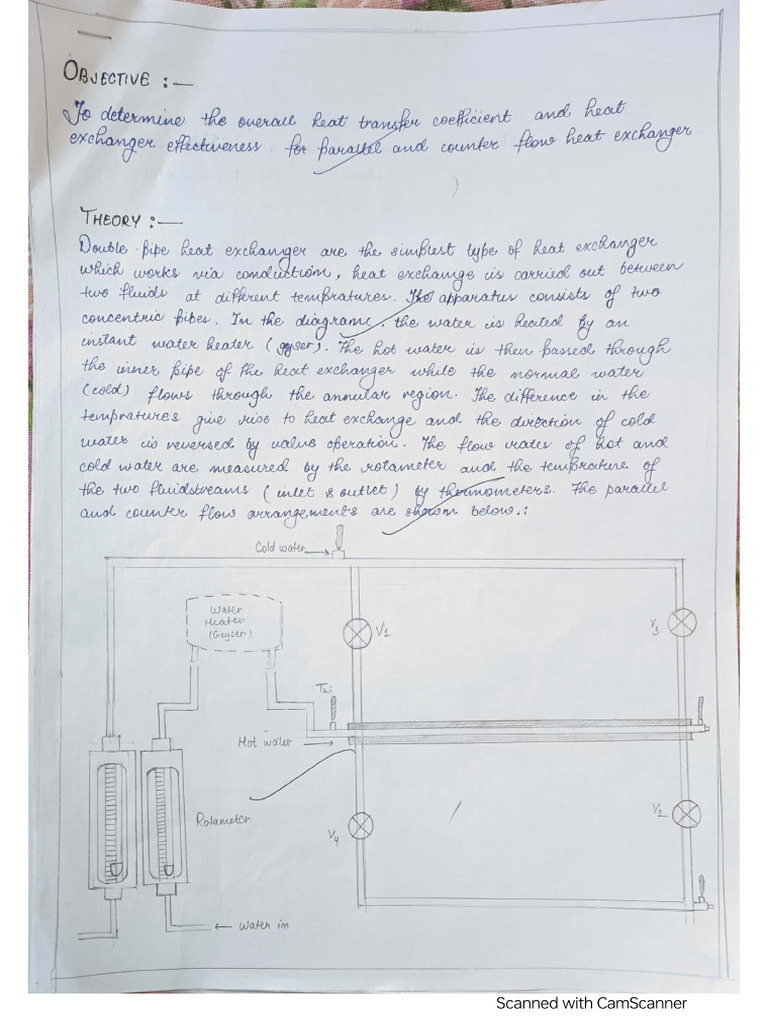 OBJECTIVE :—
To determine the overall heat transfer coefficient and heat
exchanger effectiveness for parallel and counter flow heat exchanger
THEORY :—
Double pipe heat exchanger are the simplest type of heat exchanger
which works via conduction, heat exchange is carried out between
two fluids at different tempratures. The apparatus consists of two
concentric pipes. In the diagram, the water is heated by an
instant water heater (geyser). The hot water is then passed through
the inner pipe of the heat exchanger while the normal water
(cold) flows through the annular region. The difference in the
tempratures give rise to heat exchange and the direction of cold
water is reversed by valve operation. The flow rates of hot and
cold water are measured by the rotameter and the temprature of
the two fluidstreams (inlet & outlet) by thermometers. The parallel
and counter flow arrangements are shown below.:
Cold water
Water
Heater
(Geyser)
V1
V3
Th,i
Hot water
Rotameter
V4
V2
Water in
Scanned with CamScanner